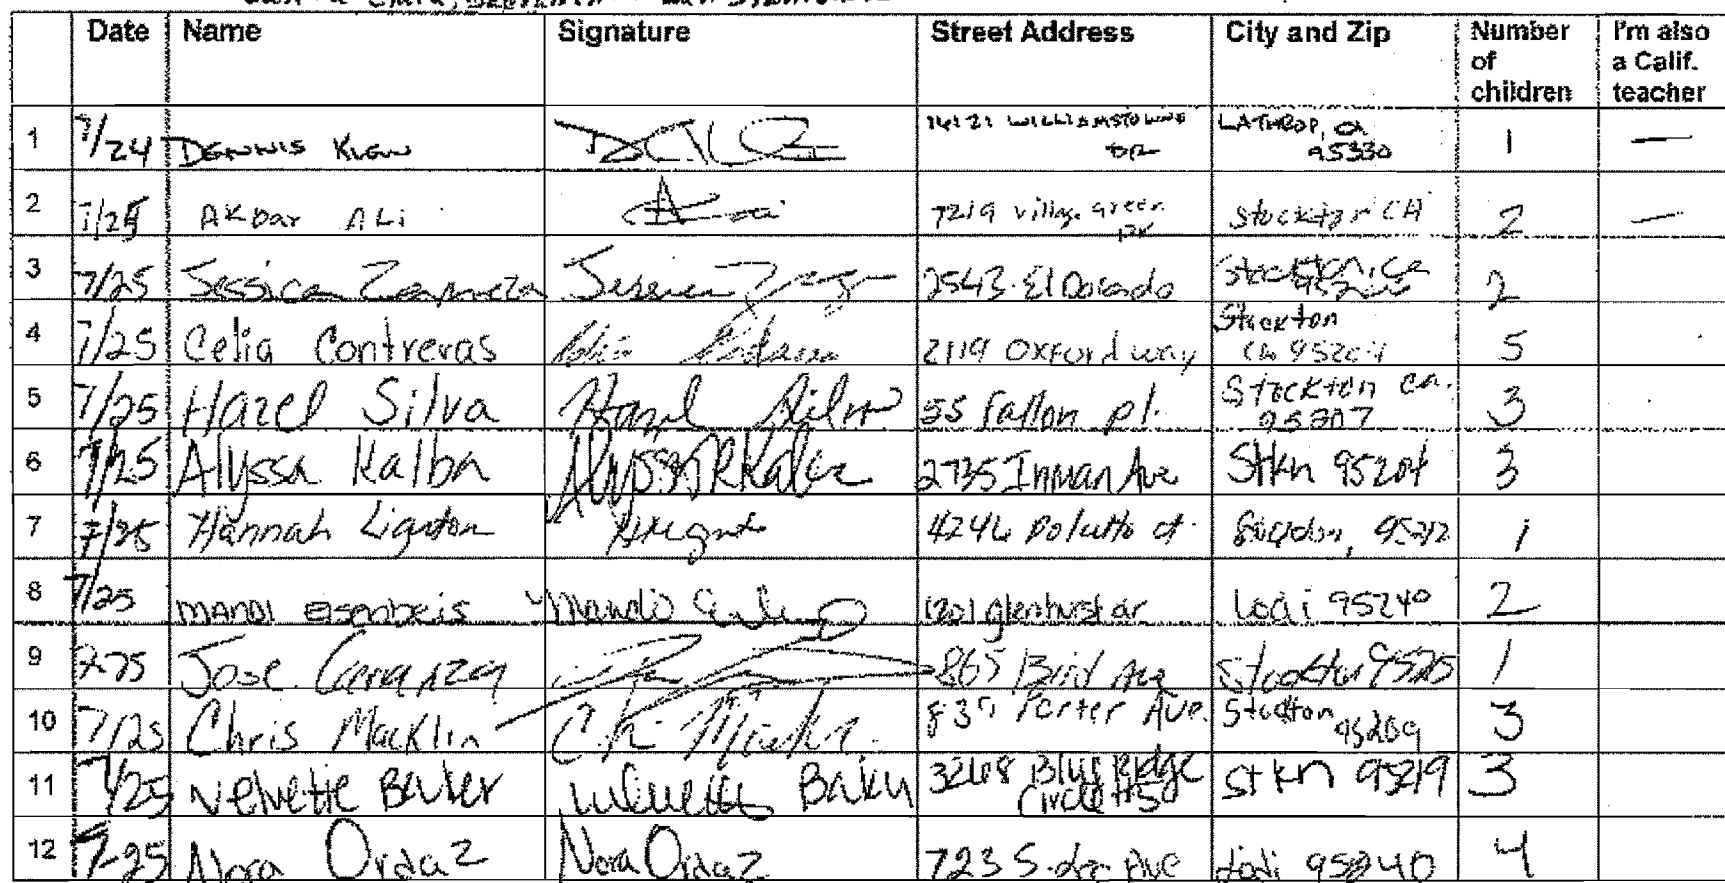 Date Name Signature Street Address City and Zip Number of children I'm also a Calif. teacher
1 7/24 DENNIS 14121 WILLIAMSTOWNE DR LATHROP, CA 95330 1 —
2 7/25 AKbar ALi 7219 Village Green DR Stockton CA 2 —
3 7/25 Jessica 2543 El Dorado Stockton, ca 2
4 7/25 Celia Contreras 2119 Oxford way Stockton Ca 95204 5
5 7/25 Hazel Silva Hazel Silva 55 Fallon pl. Stockton ca. 95207 3
6 7/25 Alyssa Kalba Alyssa R Kalba 2735 Inman Ave Stkn 95204 3
7 7/25 Hannah Ligston 4246 ct. 95212 1
8 7/25 MANDI Eisenbeis Mandi 1201 glenhurst dr Lodi 95240 2
9 7-25 Jose Carranza 865 Bird Ave Stockton 1
10 7/25 Chris Macklin 837 Porter Ave. Stockton 95209 3
11 7/25 Velvette Baker Velvette Baker 3268 Blue Ridge Circle #50 Stkn 95219 3
12 7-25 Nora Ordaz Nora Ordaz 723 S. Ave Lodi 95240 4